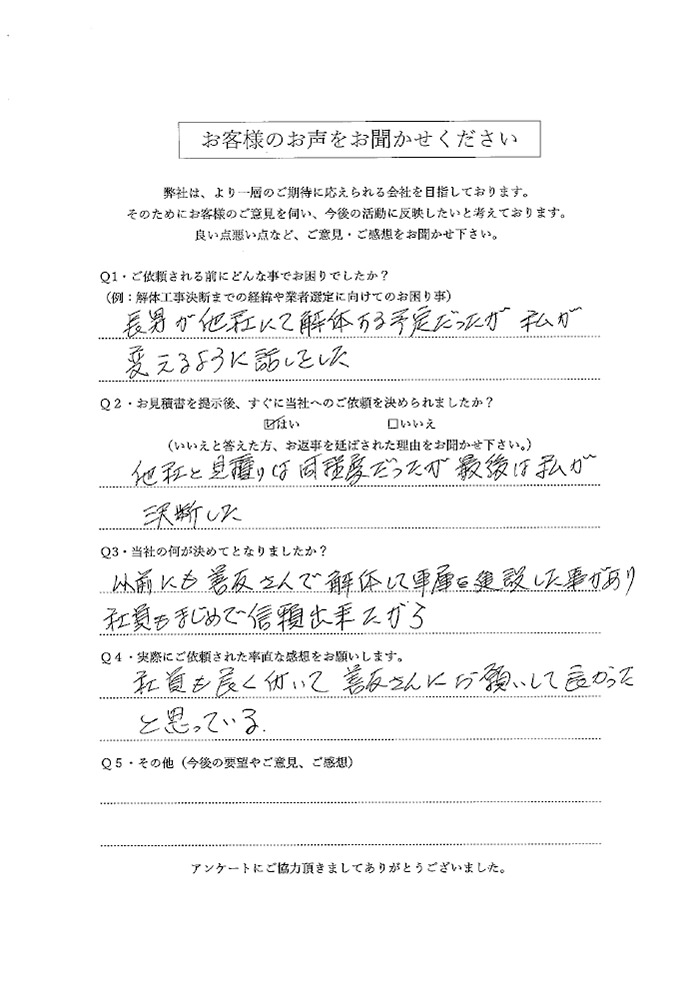 お客様のお声をお聞かせください
弊社は、より一層のご期待に応えられる会社を目指しております。
そのためにお客様のご意見を伺い、今後の活動に反映したいと考えております。
良い点悪い点など、ご意見・ご感想をお聞かせ下さい。
Q1・ご依頼される前にどんな事でお困りでしたか？
（例：解体工事決断までの経緯や業者選定に向けてのお困り事）
長男が他社にて解体する予定だったが 私が
変えるように話しをした
Q２・お見積書を提示後、すぐに当社へのご依頼を決められましたか？
☑はい □いいえ
（いいえと答えた方、お返事を延ばされた理由をお聞かせ下さい。）
他社と見積りは同程度だったが 最後は私が
決断した
Q3・当社の何が決めてとなりましたか？
以前にも 善友さんで解体して車庫を建設した事があり
社員もまじめで信頼出来たから
Q４・実際にご依頼された率直な感想をお願いします。
社員も良く付いて 善友さんにお願いして良かった
と思っている.
Q５・その他（今後の要望やご意見、ご感想）
アンケートにご協力頂きましてありがとうございました。